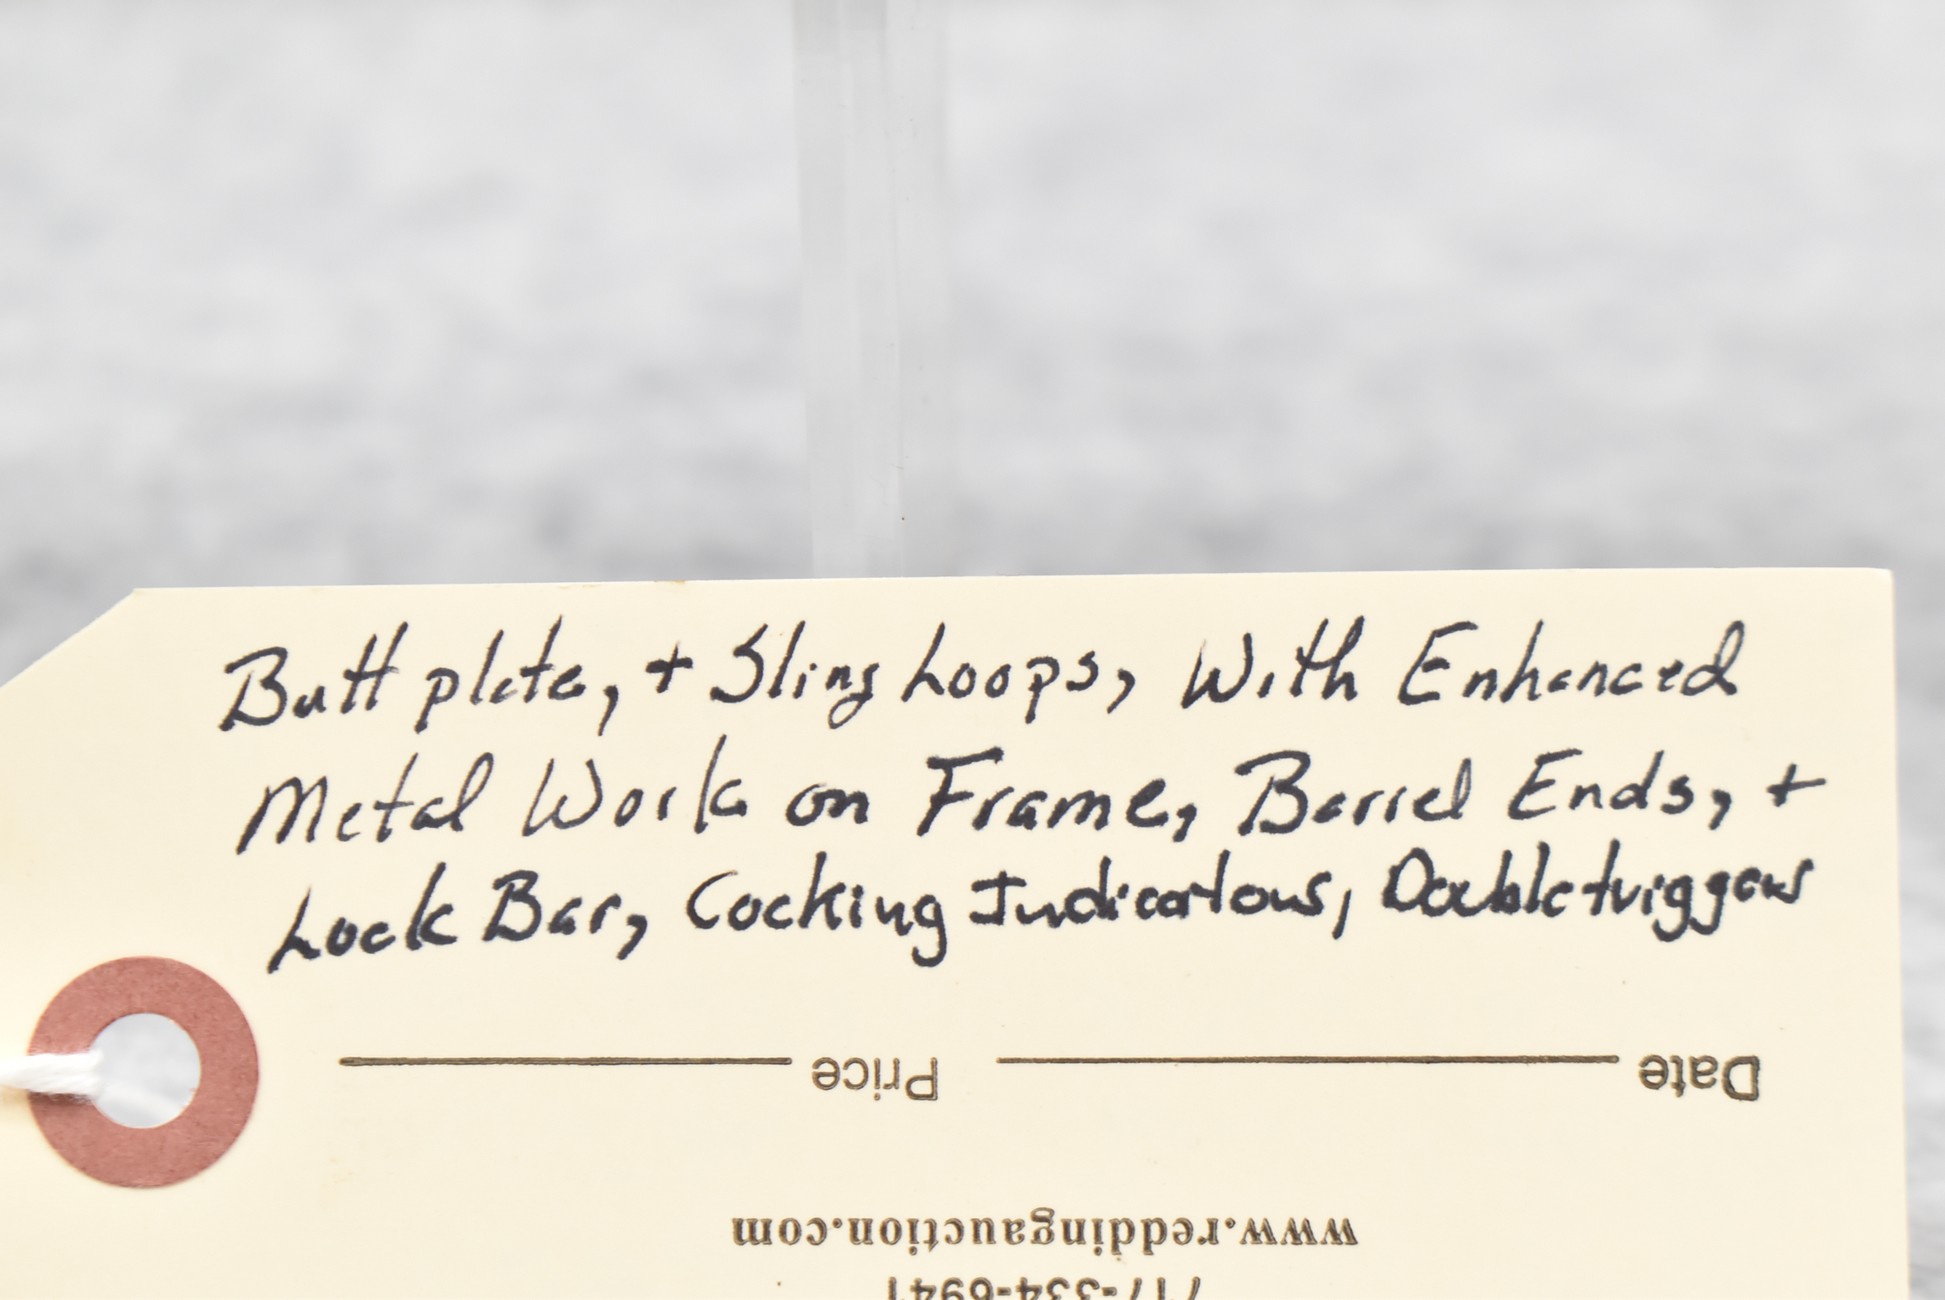 Butt plate, + Sling Loops, With Enhanced
Metal Work on Frame, Barrel Ends, +
Lock Bar, Cocking Indicators, Double triggers
Date Price
www.reddingauction.com
717-334-6941